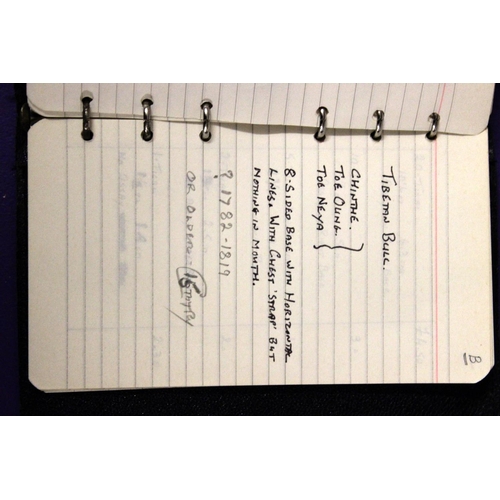 B
TIBETAN BULL.
CHINTHE.
TOE OUNG.
TOE NEYA
8-SIDED BASE WITH HORIZONTAL
LINES. WITH CHEST 'STRAP' BUT
NOTHING IN MOUTH.
? 1782-1819
OR